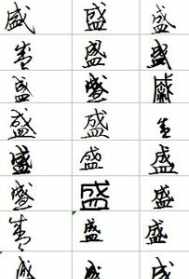 盛 盛 盛
盛 盛
盛 盛
盛 盛
盛 盛 盛
盛 盛 盛
盛 盛